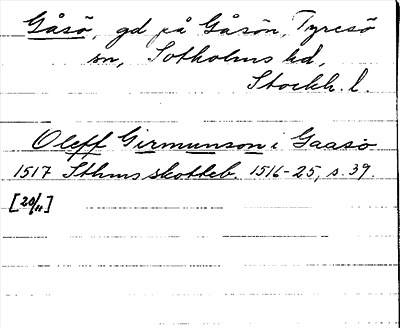 Gåsö, gd på Gåsön, Tyresö
sn, Sotholms hd,
Stockh. l.
Oleff Girmunson i Gaasö
1517 Sthms skotteb. 1516-25, s. 39.
[20/11]